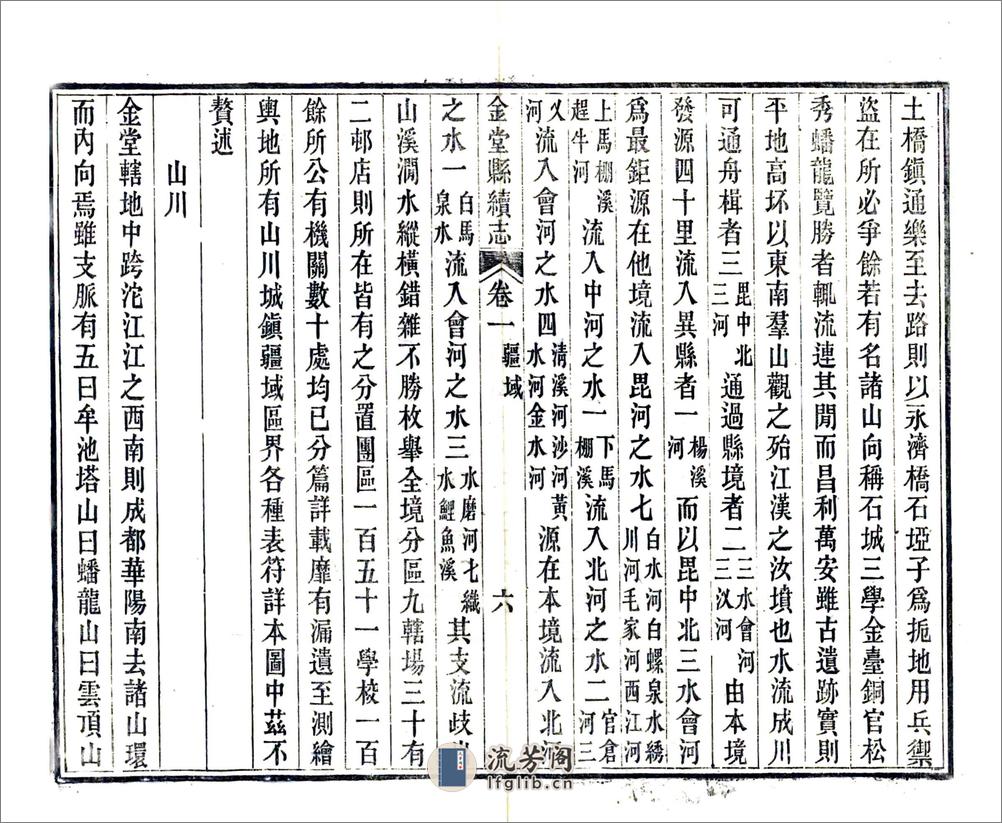 土橋鎮通樂至去路則以永濟橋石埡子爲扼地用兵禦
盜在所必爭餘若有名諸山向稱石城三學金臺銅官松
秀蟠龍覽勝者輒流連其閒而昌利萬安雖古遺跡實則
平地高坏以東南羣山觀之殆江漢之汝墳也水流成川
可通舟楫者三毘中北三河通過縣境者二三水會河三汊河由本境
發源四十里流入異縣者一楊溪河而以毘中北三水會河
爲最鉅源在他境流入毘河之水七白水河白螺泉水綉川河毛家河西江河
上馬棚溪趕牛河流入中河之水一下馬棚溪流入北河之水二官倉河三
乂河流入會河之水四清溪河沙河黃水河金水河源在本境流入北河
金堂縣續志 卷一 疆域 六
之水一白馬泉水流入會河之水三水磨河七織水鯉魚溪其支流歧
山溪澗水縱橫錯雜不勝枚舉全境分區九轄場三十有
二邨店則所在皆有之分置團區一百五十一學校一百
餘所公有機關數十處均已分篇詳載靡有漏遺至測繪
輿地所有山川城鎮疆域區界各種表符詳本圖中茲不
贅述
山川
金堂轄地中跨沱江江之西南則成都華陽南去諸山環
而內向焉雖支脈有五曰牟池塔山曰蟠龍山曰雲頂山
流芳阁
lfglib.cn